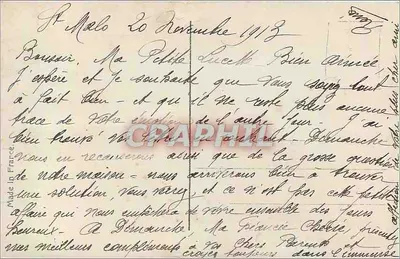 St Malo 20 Novembre 1913
Bonsoir, Ma Petite Lucette Bien aimée
J'espère et je souhaite que vous soyez tout
à fait bien - et qu'il ne reste plus aucune
trace de votre de l'autre jour - J'ai
bien trouvé Dimanche
nous en recauserons ainsi que de la grosse question
de notre maison - nous arriverons bien à trouver
une solution, vous verrez, et ce n'est pas cette petite
affaire qui nous empêchera de vivre ensemble des jours
heureux - À Dimanche Ma Fiancée Chérie, prenez
mes meilleurs compliments à vos Chers Parents et
croyez toujours dans l'immense
Made in France
CRAPHIL